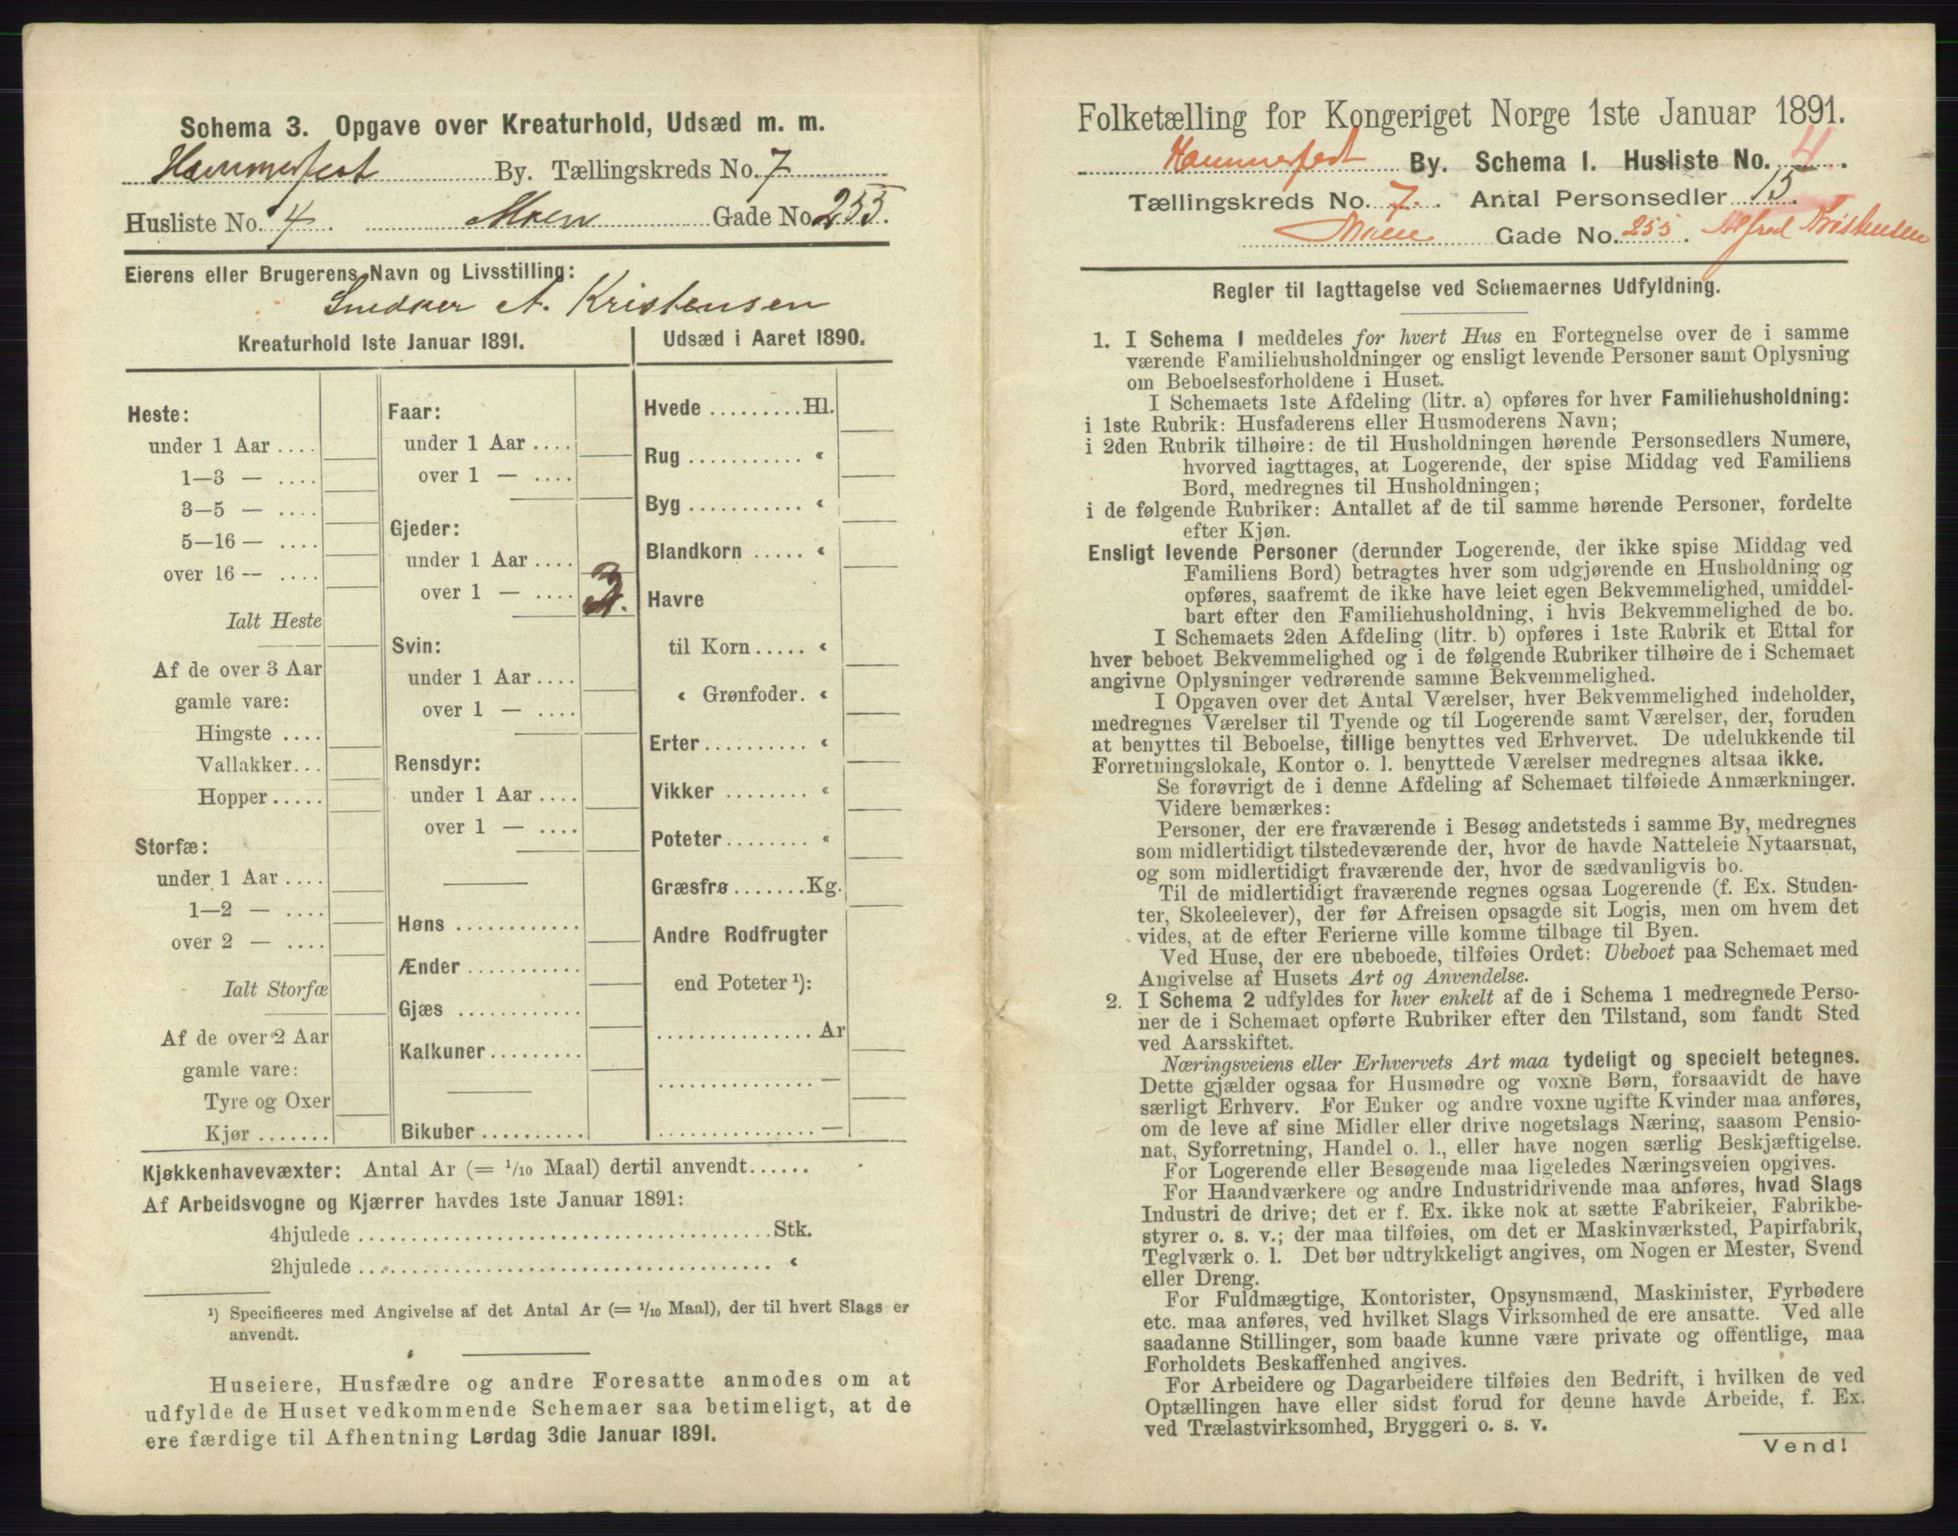 Schema 3. Opgave over Kreaturhold, Udsæd m. m.
Hammerfest By. Tællingskreds No. 7
Husliste No. 4. Moen Gade No. 255.
Eierens eller Brugerens Navn og Livsstilling:
Snedker A. Kristensen
Kreaturhold 1ste Januar 1891.
Heste:
under 1 Aar ....
1—3 — ....
3—5 — ....
5—16 — ....
over 16 — ....
Ialt Heste
Af de over 3 Aar
gamle vare:
Hingste ....
Vallakker...
Hopper.....
Storfæ:
under 1 Aar ....
1—2 — ....
over 2 — ....
Ialt Storfæ
Af de over 2 Aar
gamle vare:
Tyre og Oxer
Kjør .......
Faar:
under 1 Aar ....
over 1 — ....
Gjeder:
under 1 Aar ....
over 1 — .... 3
Svin:
under 1 Aar ....
over 1 — ....
Rensdyr:
under 1 Aar ....
over 1 — ....
Høns ............
Ænder ...........
Gjæs ............
Kalkuner.........
Bikuber ..........
Udsæd i Aaret 1890.
Hvede .........Hl.
Rug ........... “
Byg ........... “
Blandkorn ..... “
Havre
til Korn ..... “
“ Grønfoder. “
Erter.......... “
Vikker ........ “
Poteter........ “
Græsfrø .......Kg.
Andre Rodfrugter
end Poteter ¹):
............... Ar
............... —
............... —
Kjøkkenhavevæxter: Antal Ar (= 1/10 Maal) dertil anvendt......
Af Arbeidsvogne og Kjærrer havdes 1ste Januar 1891:
4hjulede ........................................Stk.
2hjulede ........................................ “
¹) Specificeres med Angivelse af det Antal Ar (= 1/10 Maal), der til hvert Slags er
anvendt.
Huseiere, Husfædre og andre Foresatte anmodes om at
udfylde de Huset vedkommende Schemaer saa betimeligt, at de
ere færdige til Afhentning Lørdag 3die Januar 1891.
Folketælling for Kongeriget Norge 1ste Januar 1891.
Hammerfest By. Schema I. Husliste No. 4.
Tællingskreds No. 7. Antal Personsedler 15.
Moen Gade No. 255. Alfred Kristensen
Regler til Iagttagelse ved Schemaernes Udfyldning.
1. I Schema I meddeles for hvert Hus en Fortegnelse over de i samme
værende Familiehusholdninger og ensligt levende Personer samt Oplysning
om Beboelsesforholdene i Huset.
I Schemaets 1ste Afdeling (litr. a) opføres for hver Familiehusholdning:
i 1ste Rubrik: Husfaderens eller Husmoderens Navn;
i 2den Rubrik tilhøire: de til Husholdningen hørende Personsedlers Numere,
hvorved iagttages, at Logerende, der spise Middag ved Familiens
Bord, medregnes til Husholdningen;
i de følgende Rubriker: Antallet af de til samme hørende Personer, fordelte
efter Kjøn.
Ensligt levende Personer (derunder Logerende, der ikke spise Middag ved
Familiens Bord) betragtes hver som udgjørende en Husholdning og
opføres, saafremt de ikke have leiet egen Bekvemmelighed, umiddel-
bart efter den Familiehusholdning, i hvis Bekvemmelighed de bo.
I Schemaets 2den Afdeling (litr. b) opføres i 1ste Rubrik et Ettal for
hver beboet Bekvemmelighed og i de følgende Rubriker tilhøire de i Schemaet
angivne Oplysninger vedrørende samme Bekvemmelighed.
I Opgaven over det Antal Værelser, hver Bekvemmelighed indeholder,
medregnes Værelser til Tyende og til Logerende samt Værelser, der, foruden
at benyttes til Beboelse, tillige benyttes ved Erhvervet. De udelukkende til
Forretningslokale, Kontor o. l. benyttede Værelser medregnes altsaa ikke.
Se forøvrigt de i denne Afdeling af Schemaet tilføiede Anmærkninger.
Videre bemærkes:
Personer, der ere fraværende i Besøg andetsteds i samme By, medregnes
som midlertidigt tilstedeværende der, hvor de havde Natteleie Nytaarsnat,
og som midlertidigt fraværende der, hvor de sædvanligvis bo.
Til de midlertidigt fraværende regnes ogsaa Logerende (f. Ex. Studen-
ter, Skoleelever), der før Afreisen opsagde sit Logis, men om hvem det
vides, at de efter Ferierne ville komme tilbage til Byen.
Ved Huse, der ere ubeboede, tilføies Ordet: Ubeboet paa Schemaet med
Angivelse af Husets Art og Anvendelse.
2. I Schema 2 udfyldes for hver enkelt af de i Schema 1 medregnede Perso-
ner de i Schemaet opførte Rubriker efter den Tilstand, som fandt Sted
ved Aarsskiftet.
Næringsveiens eller Erhvervets Art maa tydeligt og specielt betegnes.
Dette gjælder ogsaa for Husmødre og voxne Børn, forsaavidt de have
særligt Erhverv. For Enker og andre voxne ugifte Kvinder maa anføres,
om de leve af sine Midler eller drive nogetslags Næring, saasom Pensio-
nat, Syforretning, Handel o. l., eller have nogen særlig Beskjæftigelse.
For Logerende eller Besøgende maa ligeledes Næringsveien opgives.
For Haandværkere og andre Industridrivende maa anføres, hvad Slags
Industri de drive; det er f. Ex. ikke nok at sætte Fabrikeier, Fabrikbe-
styrer o. s. v.; der maa tilføies, om det er Maskinværksted, Papirfabrik,
Teglværk o. l. Det bør udtrykkeligt angives, om Nogen er Mester, Svend
eller Dreng.
For Fuldmægtige, Kontorister, Opsynsmænd, Maskinister, Fyrbødere
etc. maa anføres, ved hvilket Slags Virksomhed de ere ansatte. Ved alle
saadanne Stillinger, som baade kunne være private og offentlige, maa
Forholdets Beskaffenhed angives.
For Arbeidere og Dagarbeidere tilføies den Bedrift, i hvilken de ved
Optællingen have eller sidst forud for denne havde Arbeide, f. Ex.
ved Trælastvirksomhed, Bryggeri o. s. v.
Vend!